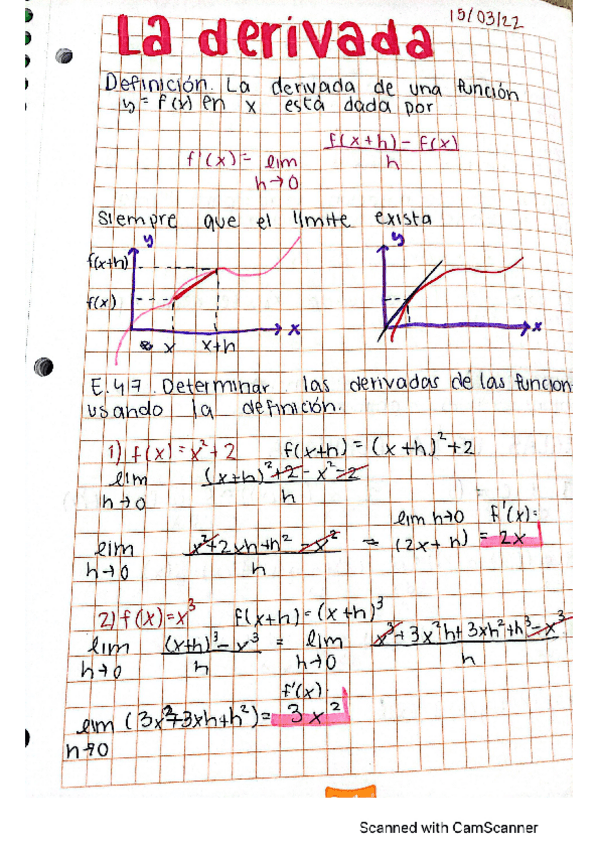 15/03/22
La derivada
Definición. La derivada de una función
y = f(x) en x está dada por
f'(x) = lim h→0 f(x+h) - f(x) / h
siempre que el límite exista
y y
f(x+h)
f(x)
x x
x x+h
E.47. Determinar las derivadas de las funcion
usando la definición.
1) f(x) = x²+2 f(x+h) = (x+h)²+2
lim h→0 (x+h)²+2-x²-2 / h
lim h→0 x²+2xh+h²-x² / h = lim h→0 (2x+h) = f'(x): 2x
2) f(x)=x³ f(x+h)=(x+h)³
lim h→0 (x+h)³-x³ / h = lim h→0 x³+3x²h+3xh²+h³-x³ / h
lim h→0 (3x²+3xh+h²) = f'(x): 3x²
Scanned with CamScanner